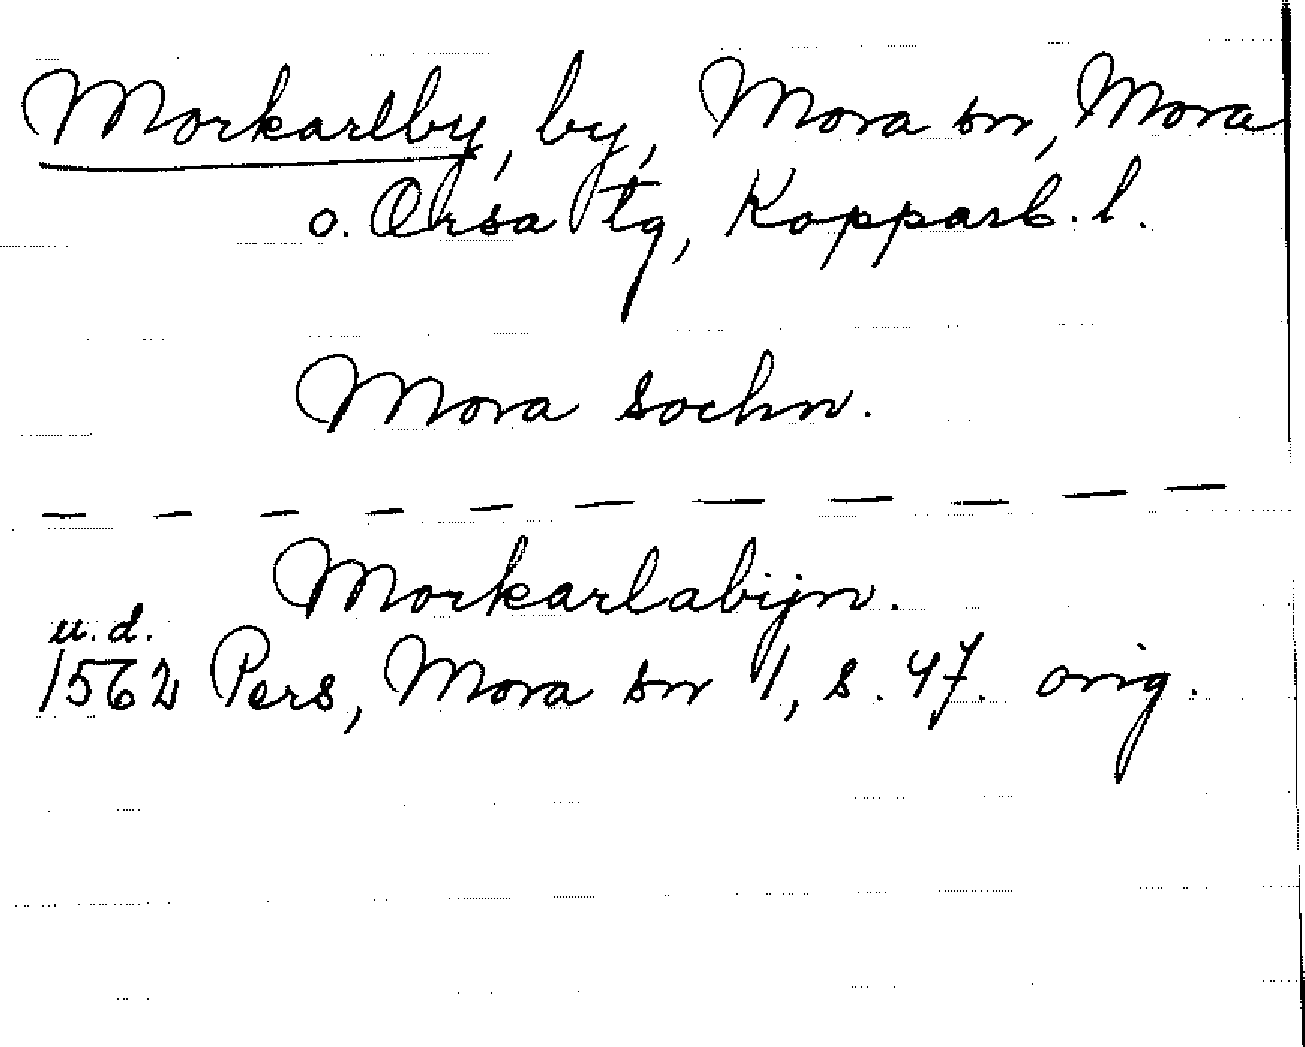 Morkarlby, by, Mora sn, Mora
o. Orsa tg, Kopparb. l.
Mora sochn.
— — — — — — — — — —
Morkarlabijn.
u. d.
1562 Pers, Mora sn 1, s. 47. orig.